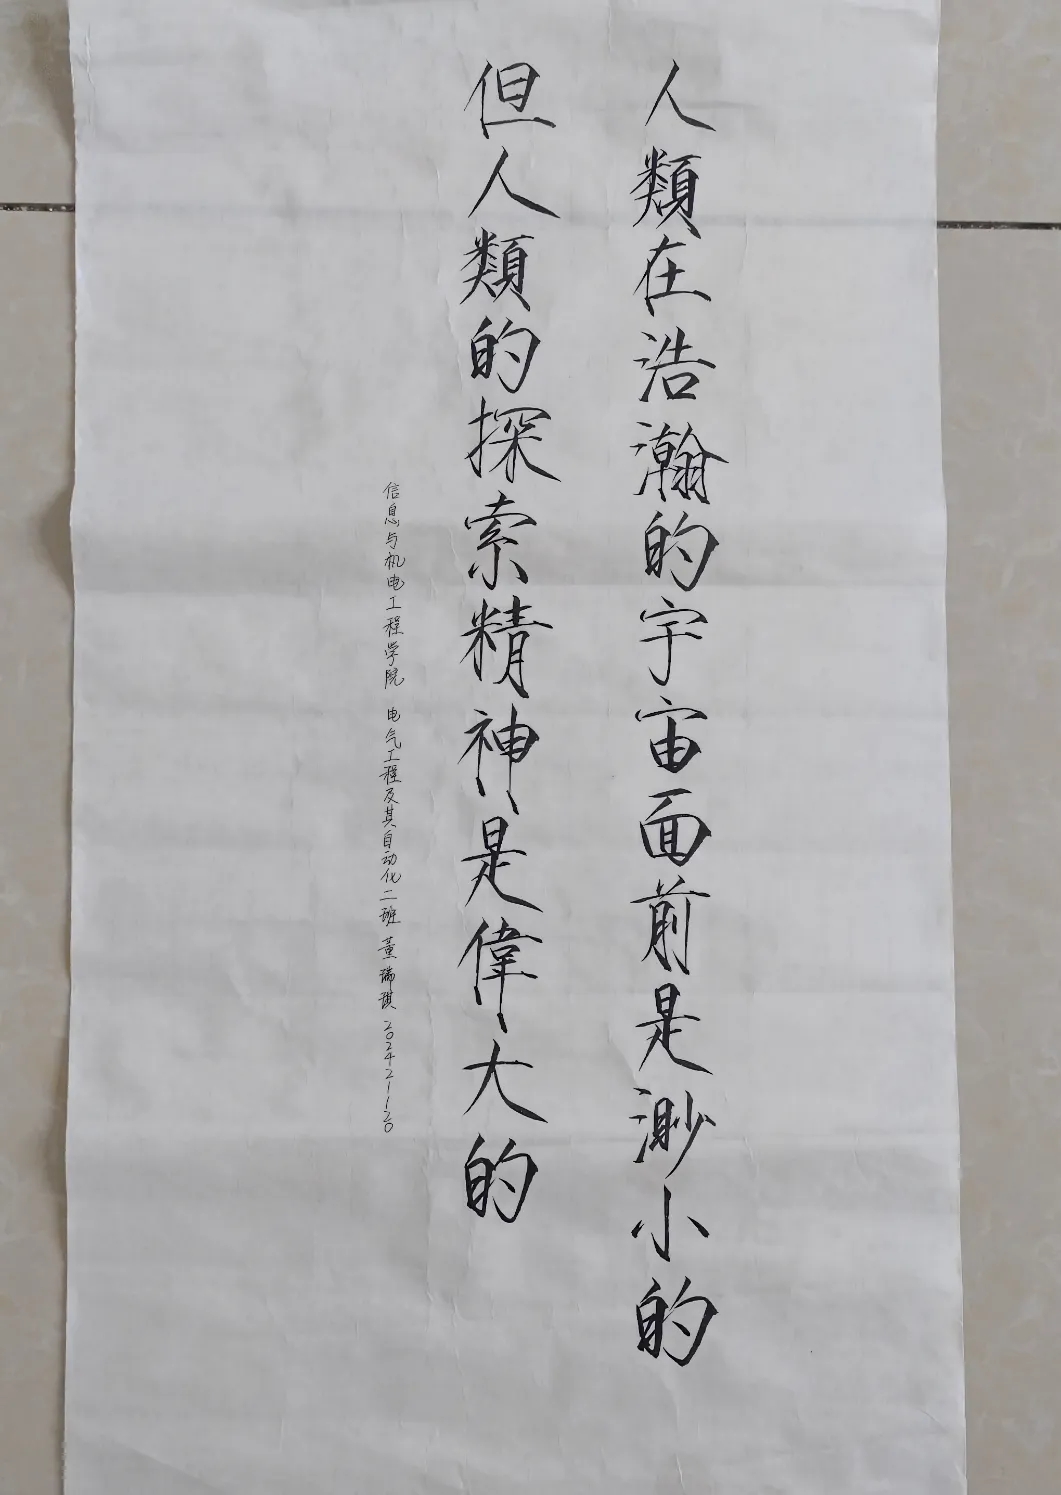 人類在浩瀚的宇宙面前是渺小的
但人類的探索精神是偉大的
信息与机电工程学院 电气工程及其自动化二班 董瑞琪 202421120